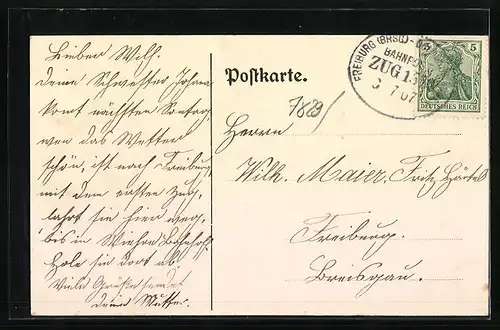 Lieber Wilh.
deine Schwester Johana
komt nächsten Sontag
wen das Wetter
schön, ist nach Freiburg,
mit dem ersten Zug,
fahrt sie hier weg,
bis in Wiehre Bahnhof.
Hole sie dort ab
Viele Grüße sendet
deine Mutter.
Postkarte.
7829/
FREIBURG (BRSG)-
BAHNPOST
ZUG 15
3 7 07
5
DEUTSCHES REICH
Herrn
Wilh. Maier, Fritz Härtel
Freiburg.
Breisgau.